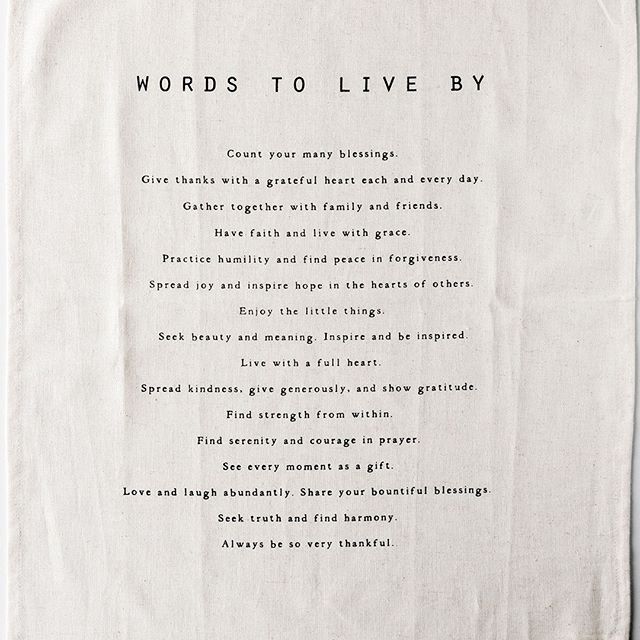 WORDS TO LIVE BY
Count your many blessings.
Give thanks with a grateful heart each and every day.
Gather together with family and friends.
Have faith and live with grace.
Practice humility and find peace in forgiveness.
Spread joy and inspire hope in the hearts of others.
Enjoy the little things.
Seek beauty and meaning. Inspire and be inspired.
Live with a full heart.
Spread kindness, give generously, and show gratitude.
Find strength from within.
Find serenity and courage in prayer.
See every moment as a gift.
Love and laugh abundantly. Share your bountiful blessings.
Seek truth and find harmony.
Always be so very thankful.